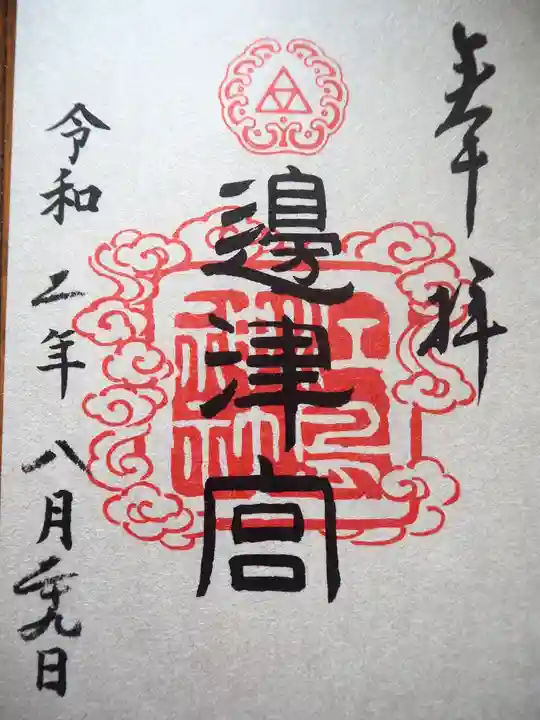 奉拝
邊津宮
令和二年八月二十九日